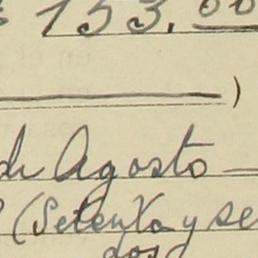 153.00
)
de Agosto
(Setenta y se
dos